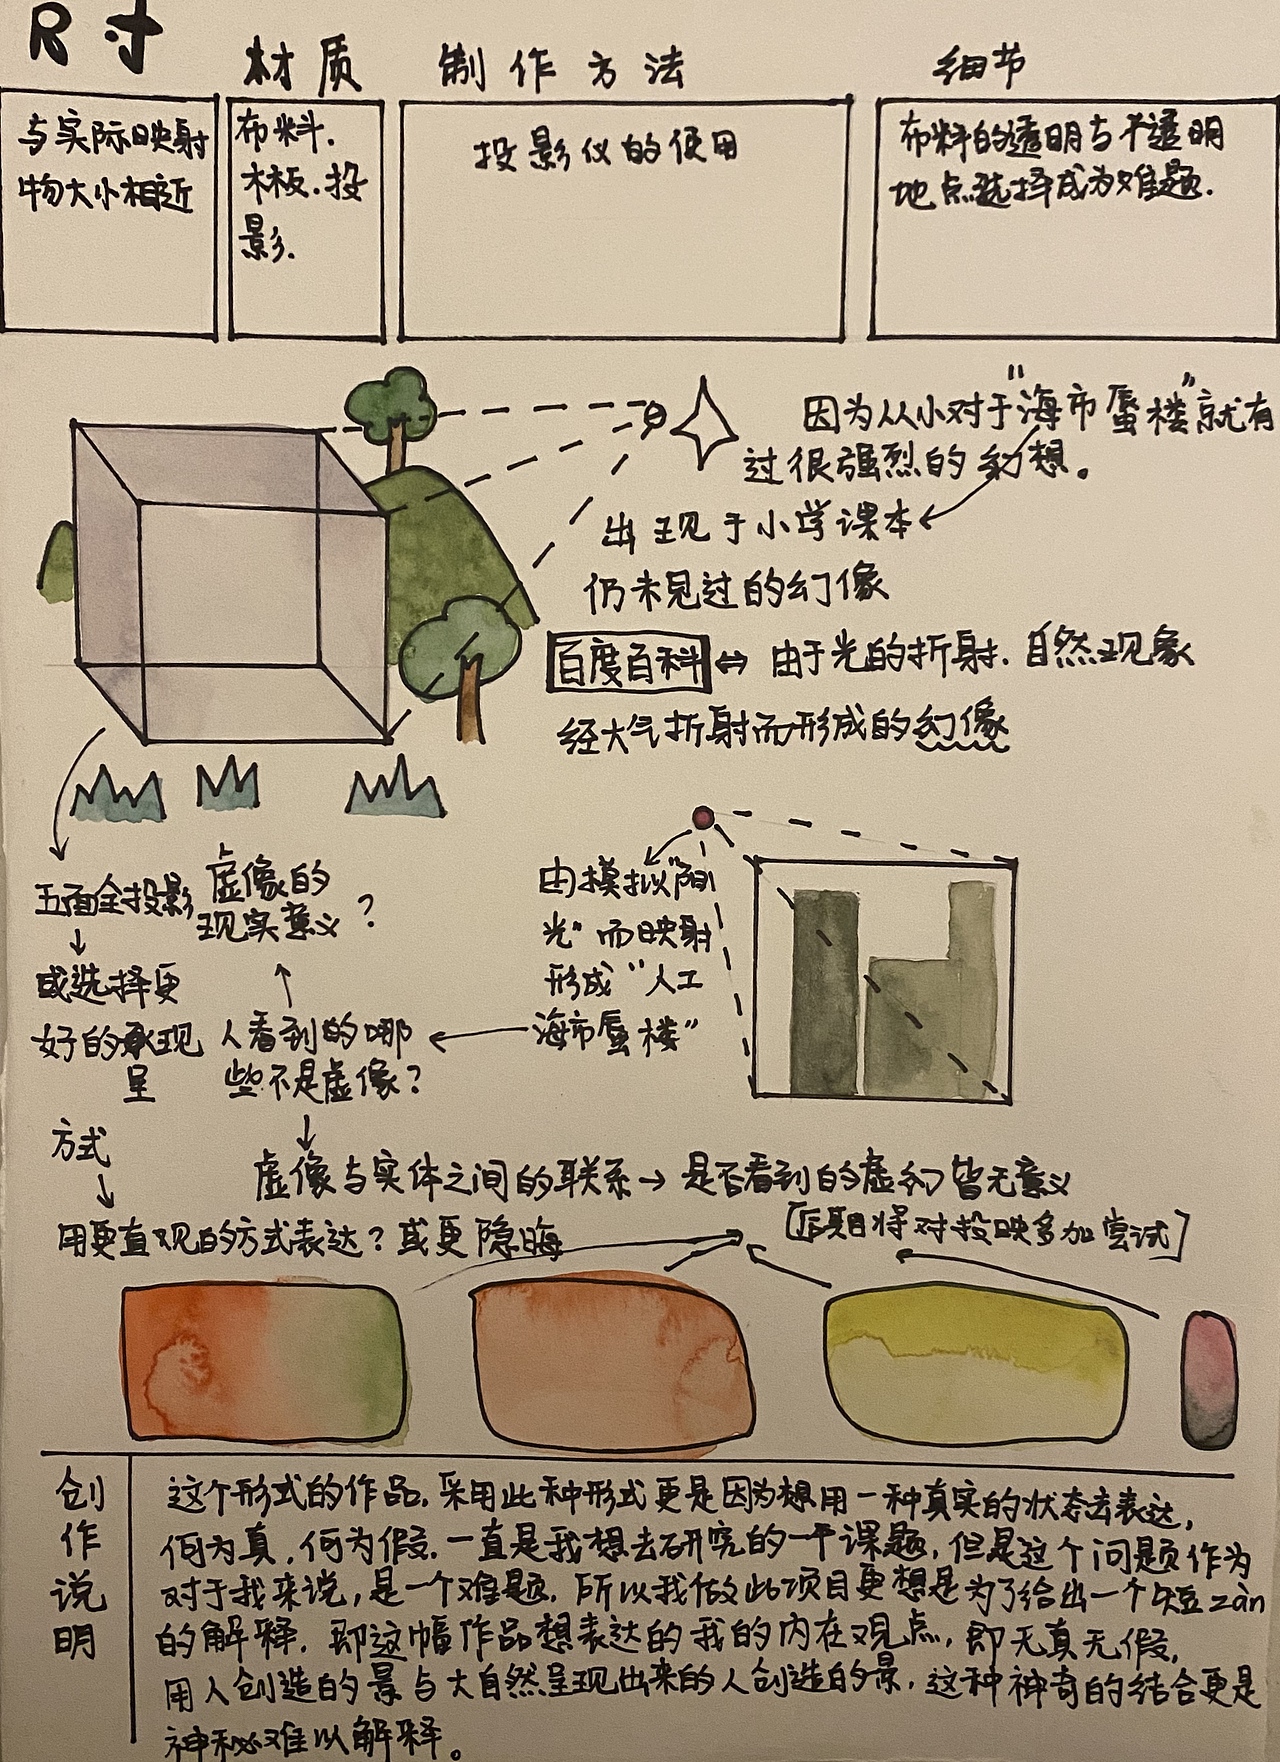 尺寸
材质
制作方法
细节
与实际映射
物大小相近
布料.
木板.投
影.
投影仪的使用
布料的透明与半透明
地点选择成为难题.
因为从小对于“海市蜃楼”就有
过很强烈的幻想。
出现于小学课本
仍未见过的幻像
百度百科 ⇔ 由于光的折射.自然现象
经大气折射而形成的幻像
五面全投影
或选择更
好的呈现
方式
虚像的
现实意义?
人看到的哪
些不是虚像?
由模拟“阳
光”而映射
形成“人工
海市蜃楼”
虚像与实体之间的联系→是否看到的虚幻皆无意义
用更直观的方式表达?或更隐晦
[后期将对投映多加尝试]
创作说明
这个形式的作品,采用此种形式更是因为想用一种真实的状态去表达,
何为真,何为假.一直是我想去研究的一个课题,但是这个问题作为
对于我来说,是一个难题.所以我做此项目更想是为了给出一个短zàn
的解释.即这幅作品想表达的我的内在观点,即无真无假,
用人创造的景与大自然呈现出来的人创造的景.这种神奇的结合更是
神秘难以解释。